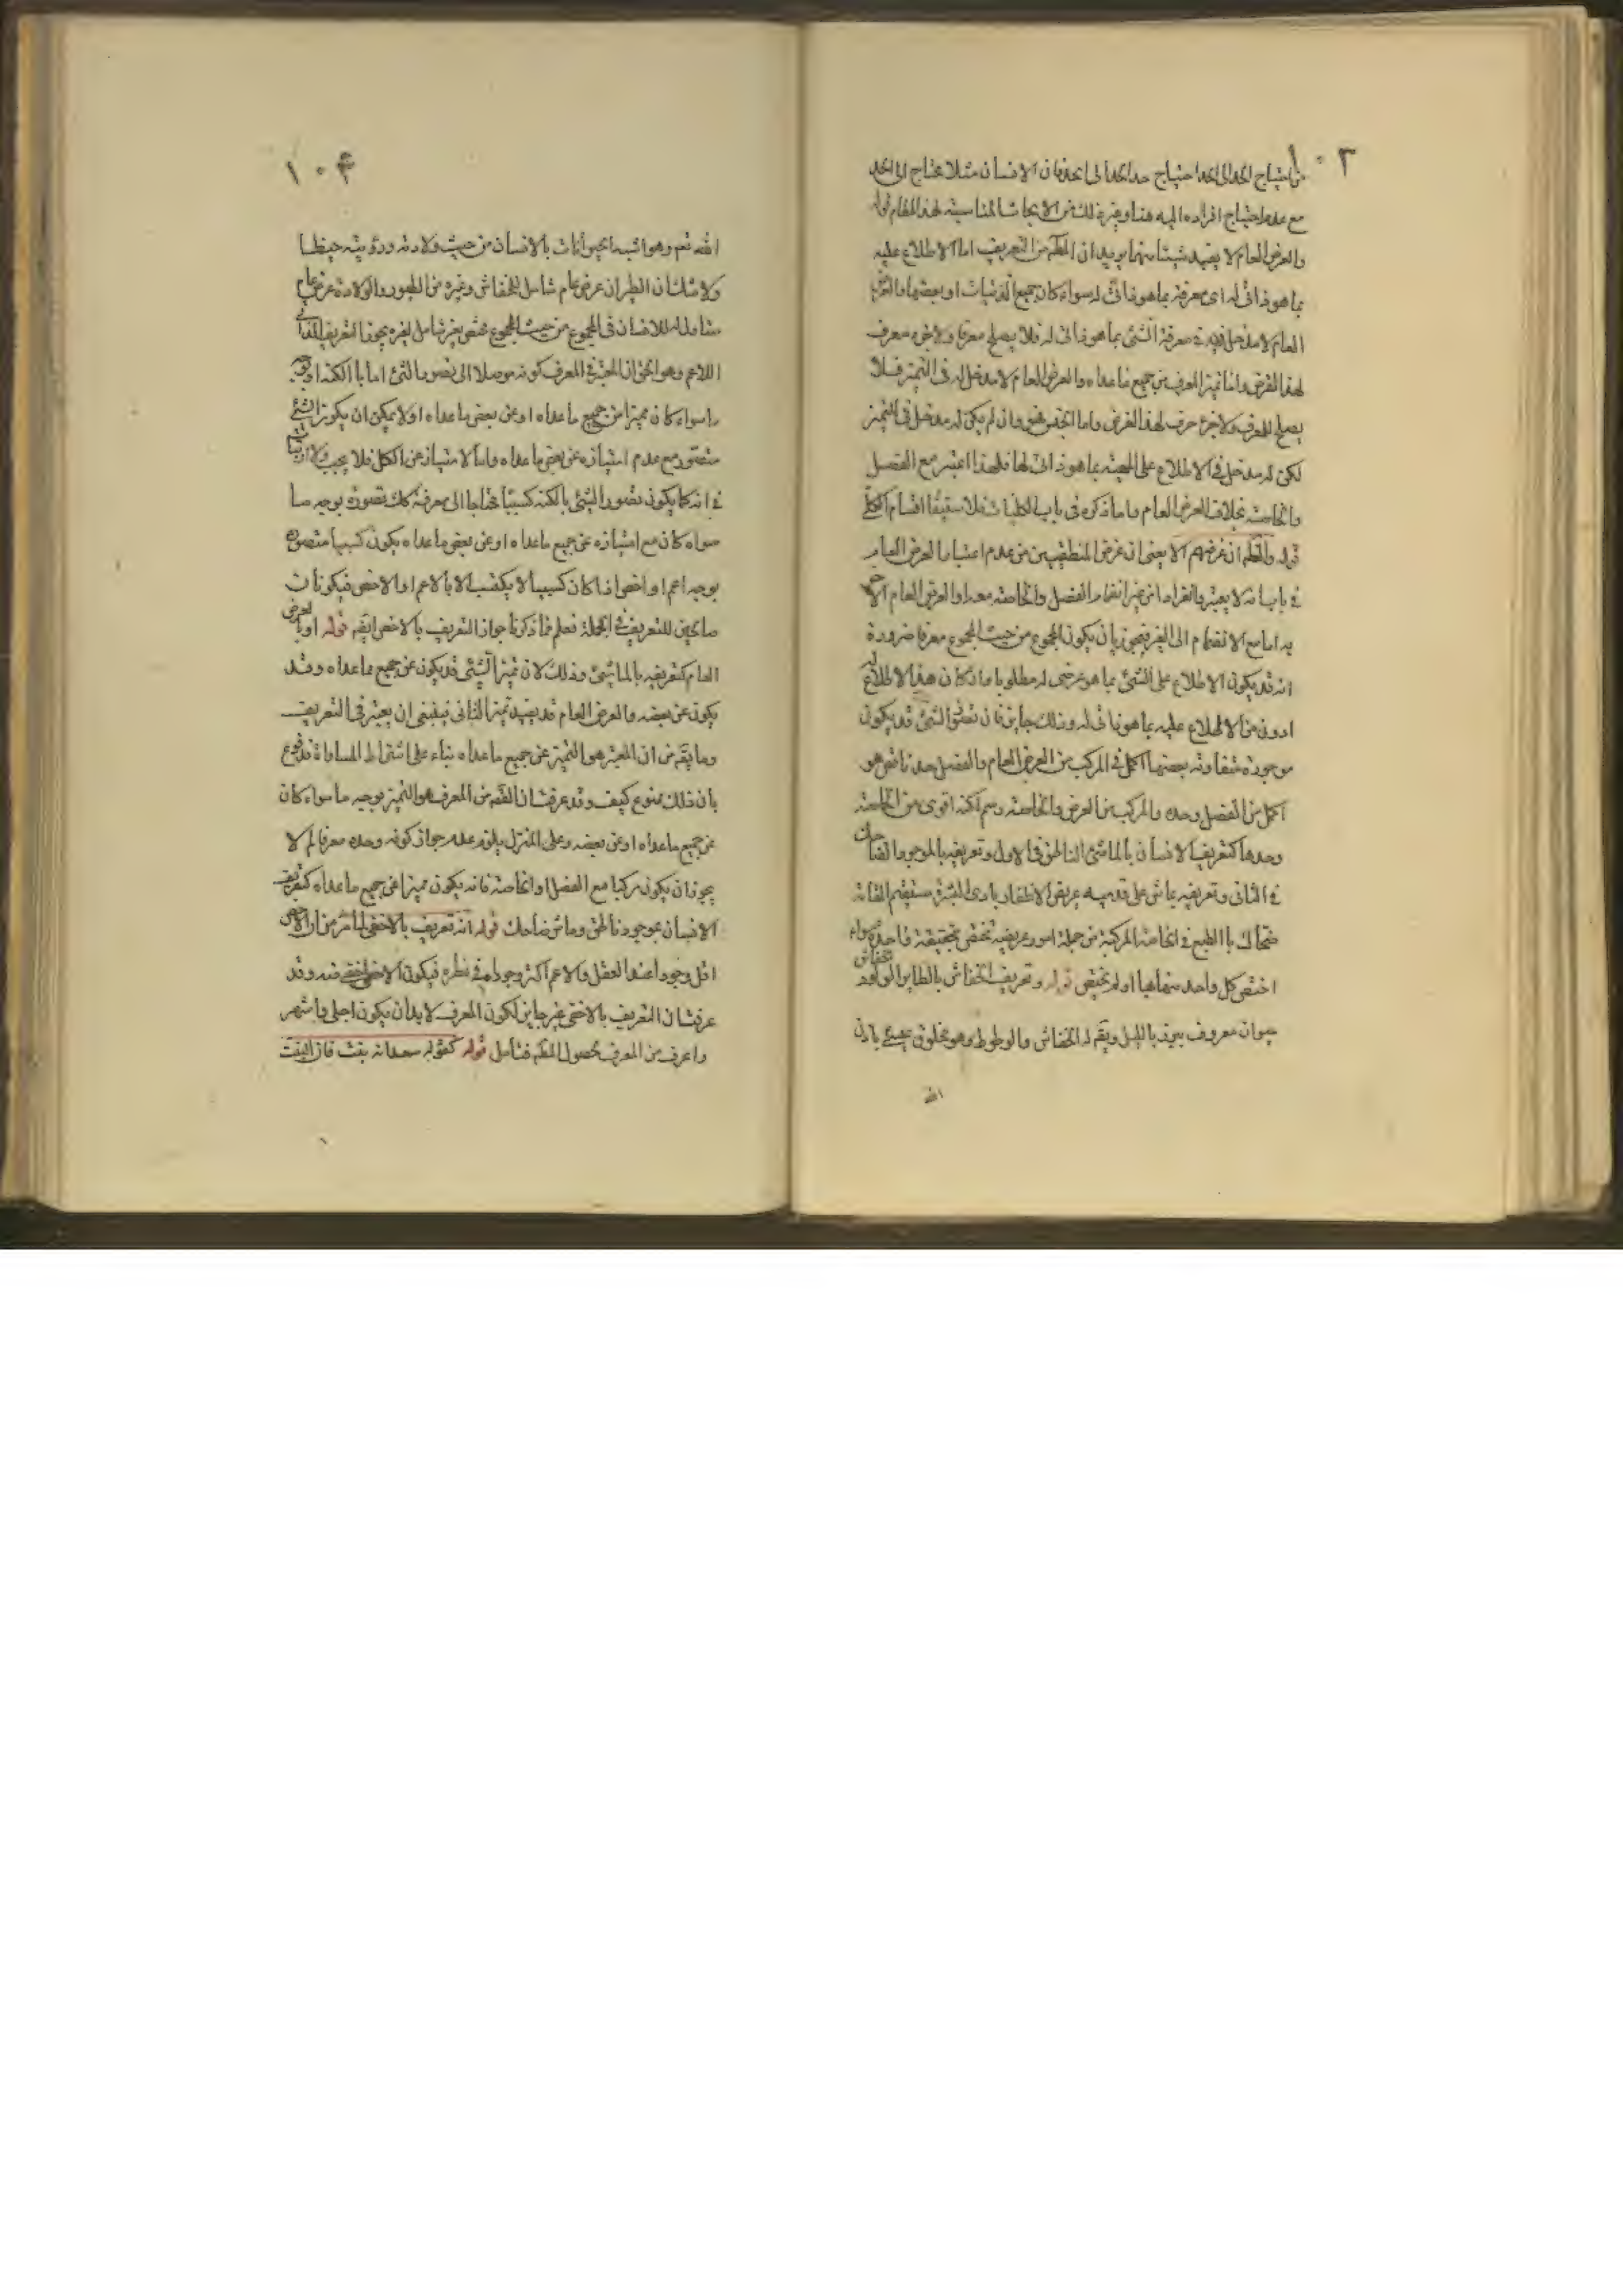 ١٠٣
من احتياج الحد الى الحد احتياج حد الحد الى الحد فان الانسان مثلا محتاج الى الحد
مع عدم احتياج افراده اليه هنا وغير ذلك من الابحاث المناسبة لهذا المقام قوله
والعرض العام لا يفيد شيئا منهما يريد ان المقصم من التعريف اما الاطلاع عليه
بما هو ذاتى له اى معرفة بما هو ذاتى له سواء كان جميع الذاتيات او بعضها والعرض
العام لا مدخل فيه فى معرفة الشئ بما هو ذاتى له فلا يصلح معرفا ولا جزء معرف
لهذا الغرض واما تميز المعرف من جميع ما عداه والعرض العام لا مدخل له فى التميز فلا
يصلح للمعرف ولا جزء معرف لهذا الغرض واما الجنس فهو وان لم يكن له مدخل فى التميز
لكن له مدخل فى الاطلاع على المهيته بما هو ذاتى لها فلهذا اعتبر مع الفصل
والخاصة بخلاف العرض العام واما ذكره فى باب الكليات فلاستيفاء اقسام الكلى
قوله والظم ان غرضهم الا يعنى ان غرض المنطقيين من عدم اعتبار العرض العام
فى باب انه لا يعتبر بانفراد من غير انضمام الفصل والخاصة معه او العرض العام الاخر
به اما مع الانضمام الى الغير فيجوز بان يكون المجموع من حيث المجموع معرفا ضرورة
انه قد يكون الاطلاع على الشئ بما هو عرضى له مطلوبا وان كان هذا الاطلاع
ادون من الاطلاع عليه بما هو ذاتى له وذلك جايز فان تصور الشئ قد يكون
موجوده متفاوته بعضها اكمل فى المركب من العرض العام والفصل حد ناقص هو
اكمل من الفصل وحده والمركب من العرض والخاصة رسم لكنه اقوى من الخاصة
وحدها كتعريف الانسان بالماشى الناطق فى الاول وتعريفه بالموجود الضاحك
فى الثانى وتعريفه بماش على قدميه عريض الاظفار بادى البشرة مستقيم القامة
ضحاك بالطبع فى الخاصة المركبة من جملة امور عرضية تختص بحقيقة واحدة سواء
اختص كل واحد منها بها او لم تختص قوله وتعريف الخفاش بالطاير الولود الخفاش
حيوان معروف يبرز بالليل ويقم له الخفاش والوطواط وهو مخلوق عيسى باذن
الله
١٠۴
الله نعم وهو اشبه الحيوانات بالانسان من حيث ولادته ورؤيته حيضا
ولا شك ان الطيران عرض عام شامل للخفاش وغيره من الطيور والولادة عرض عام
شامل له للانسان فى المجموع من حيث المجموع مختص بغير شامل لغيره يجوز التعريف
اللاعم وهو الحق ان المعتبر فى المعرف كونه موصلا الى تصور الشئ اما بالكنه او بوجه
ما سواء كان مميزا من جميع ما عداه او عن بعض ما عداه اولا يمكن ان يكون الشئ
متصور مع عدم امتيازه عن بعض ما عداه واما الامتياز عن الكل فلا يجب ولا ارتياب
فى انه كما يكون تصور الشئ بالكنه كسبيا محتاجا الى معرفة كك تصوره بوجه ما
سواء كان مع امتيازه عن جميع ما عداه او عن بعض ما عداه يكون كسبيا متصوره
بوجه اعم او اخص اذا كان كسبيا لا يكتسب الا بالاعم او الاخص فيكونان
صالحين للتعريف فى الجملة فعلم مما ذكرنا جواز التعريف بالاخص ايضم قوله او بالعرض
العام كتعريفه بالماشى وذلك لان تميز الشئ قد يكون عن جميع ما عداه وقد
يكون عن بعضه والعرض العام قد يفيد تميز الثانى فينبغى ان يعتبر فى التعريف
وما يقم من ان المعتبر هو التميز عن جميع ما عداه بناء على اشتراط المساواة مدفوع
بان ذلك ممنوع كيف وقد عرفت ان القصم من المعرف هو التميز بوجه ما سواء كان
عن جميع ما عداه او عن بعضه وعلى التنزل يلزم عدم جواز كونه وحده معرفا لم لا
يجوز ان يكون مركبا مع الفصل او الخاصة فانه يكون مميزا عن جميع ما عداه كتعريف
الانسان بموجود ناطق وماش ضاحك قوله انه تعريف بالاخفى لما مر من ان الاخص
اقل وجودا عند العقل والاعم اكثر وجودا فى نظره فيكون الاخص اخفى منه وقد
عرفت ان التعريف بالاخفى غير جايز لكون المعرف لا بد ان يكون اجلى واشهر
واعرف من المعرف لحصول المقصم فتأمل قوله كقوله سعدانه بنت فان البنت